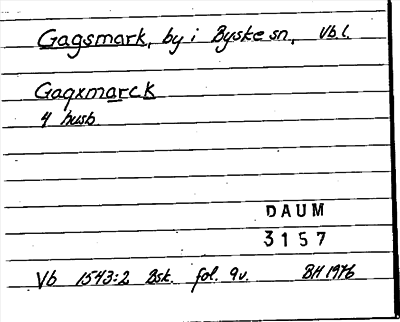 Gagsmark, by i Byske sn, Vb.l.
Gagxmarck
4 husb
DAUM
3157
Vb 1543:2 Bsk. fol. 9v. BH 1976